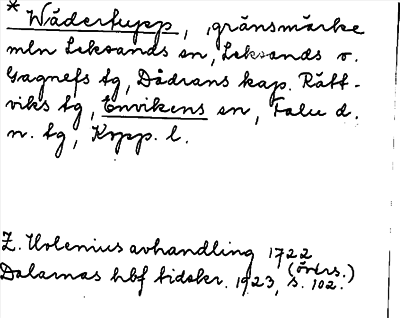 * Wädertupp, gränsmärke
mln Leksands sn, Leksands o.
Gagnefs tg, Dådrans kap. Rätt-
viks tg, Envikens sn, Falu d.
n. tg, Kopp. l.
Z. Holenius avhandling 1722
(övers.)
Dalarnas hbf tidskr. 1923, s. 102.